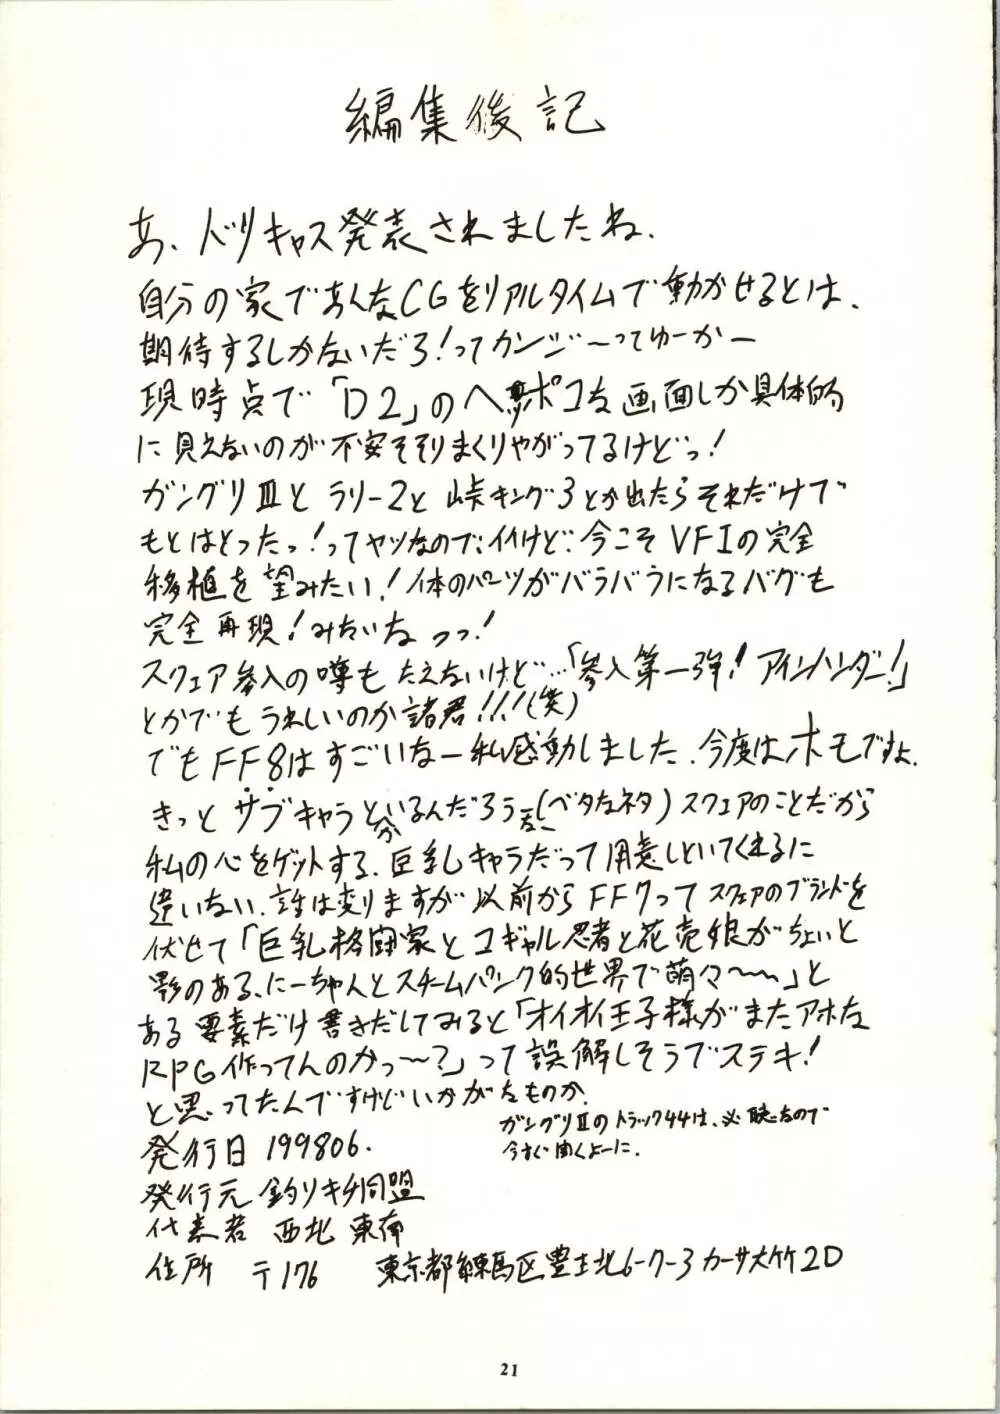 編集後記
あ、ドリキャス発表されましたね、
自分の家であんなCGをリアルタイムで動かせるとは、
期待するしかないだろ！ってカンジ〜ってゆーかー
現時点で「D2」のヘッポコな画面しか具体的
に見えないのが不安そそりまくりやがってるけどっ！
ガングリⅢとラリー2と峠キング3とか出たらそれだけで
もとはとったっ！ってヤツなので、イイけど、今こそVF1の完全
移植を望みたい！体のパーツがバラバラになるバグも
完全再現！みたいなっっ！
スクェア参入の噂もたえないけど…「参入第一弾！アインハンダー！」
とかでもうれしいのか諸君！！！(笑)
でもFF8はすごいなー私感動しました、今度はホモですよ、
きっとサブキャラと分いるんだろう(ベタなネタ)スクェアのことだから
私の心をゲットする、巨乳キャラだって用意しといてくれるに
違いない、話は変りますが以前からFF7ってスクェアのブランドを
伏せて「巨乳格闘家とコギャル忍者と花売娘がちょいと
影のある、にーちゃんとスチームパンク的世界で萌々〜〜」と
ある要素だけ書きだしてみると「オイオイ王子様がまたアホな
RPG作ってんのかっ〜？」って誤解しそうでステキ！
と思ってたんですけどいかがなものか、
ガングリⅡのトラック44は、必聴なので
今すぐ聞くよーに、
発行日 199806.
発行元 釣りキチ同盟
代表者 西北 東南
住所 〒176 東京都練馬区豊玉北6-7-3カーサ大竹2D
21